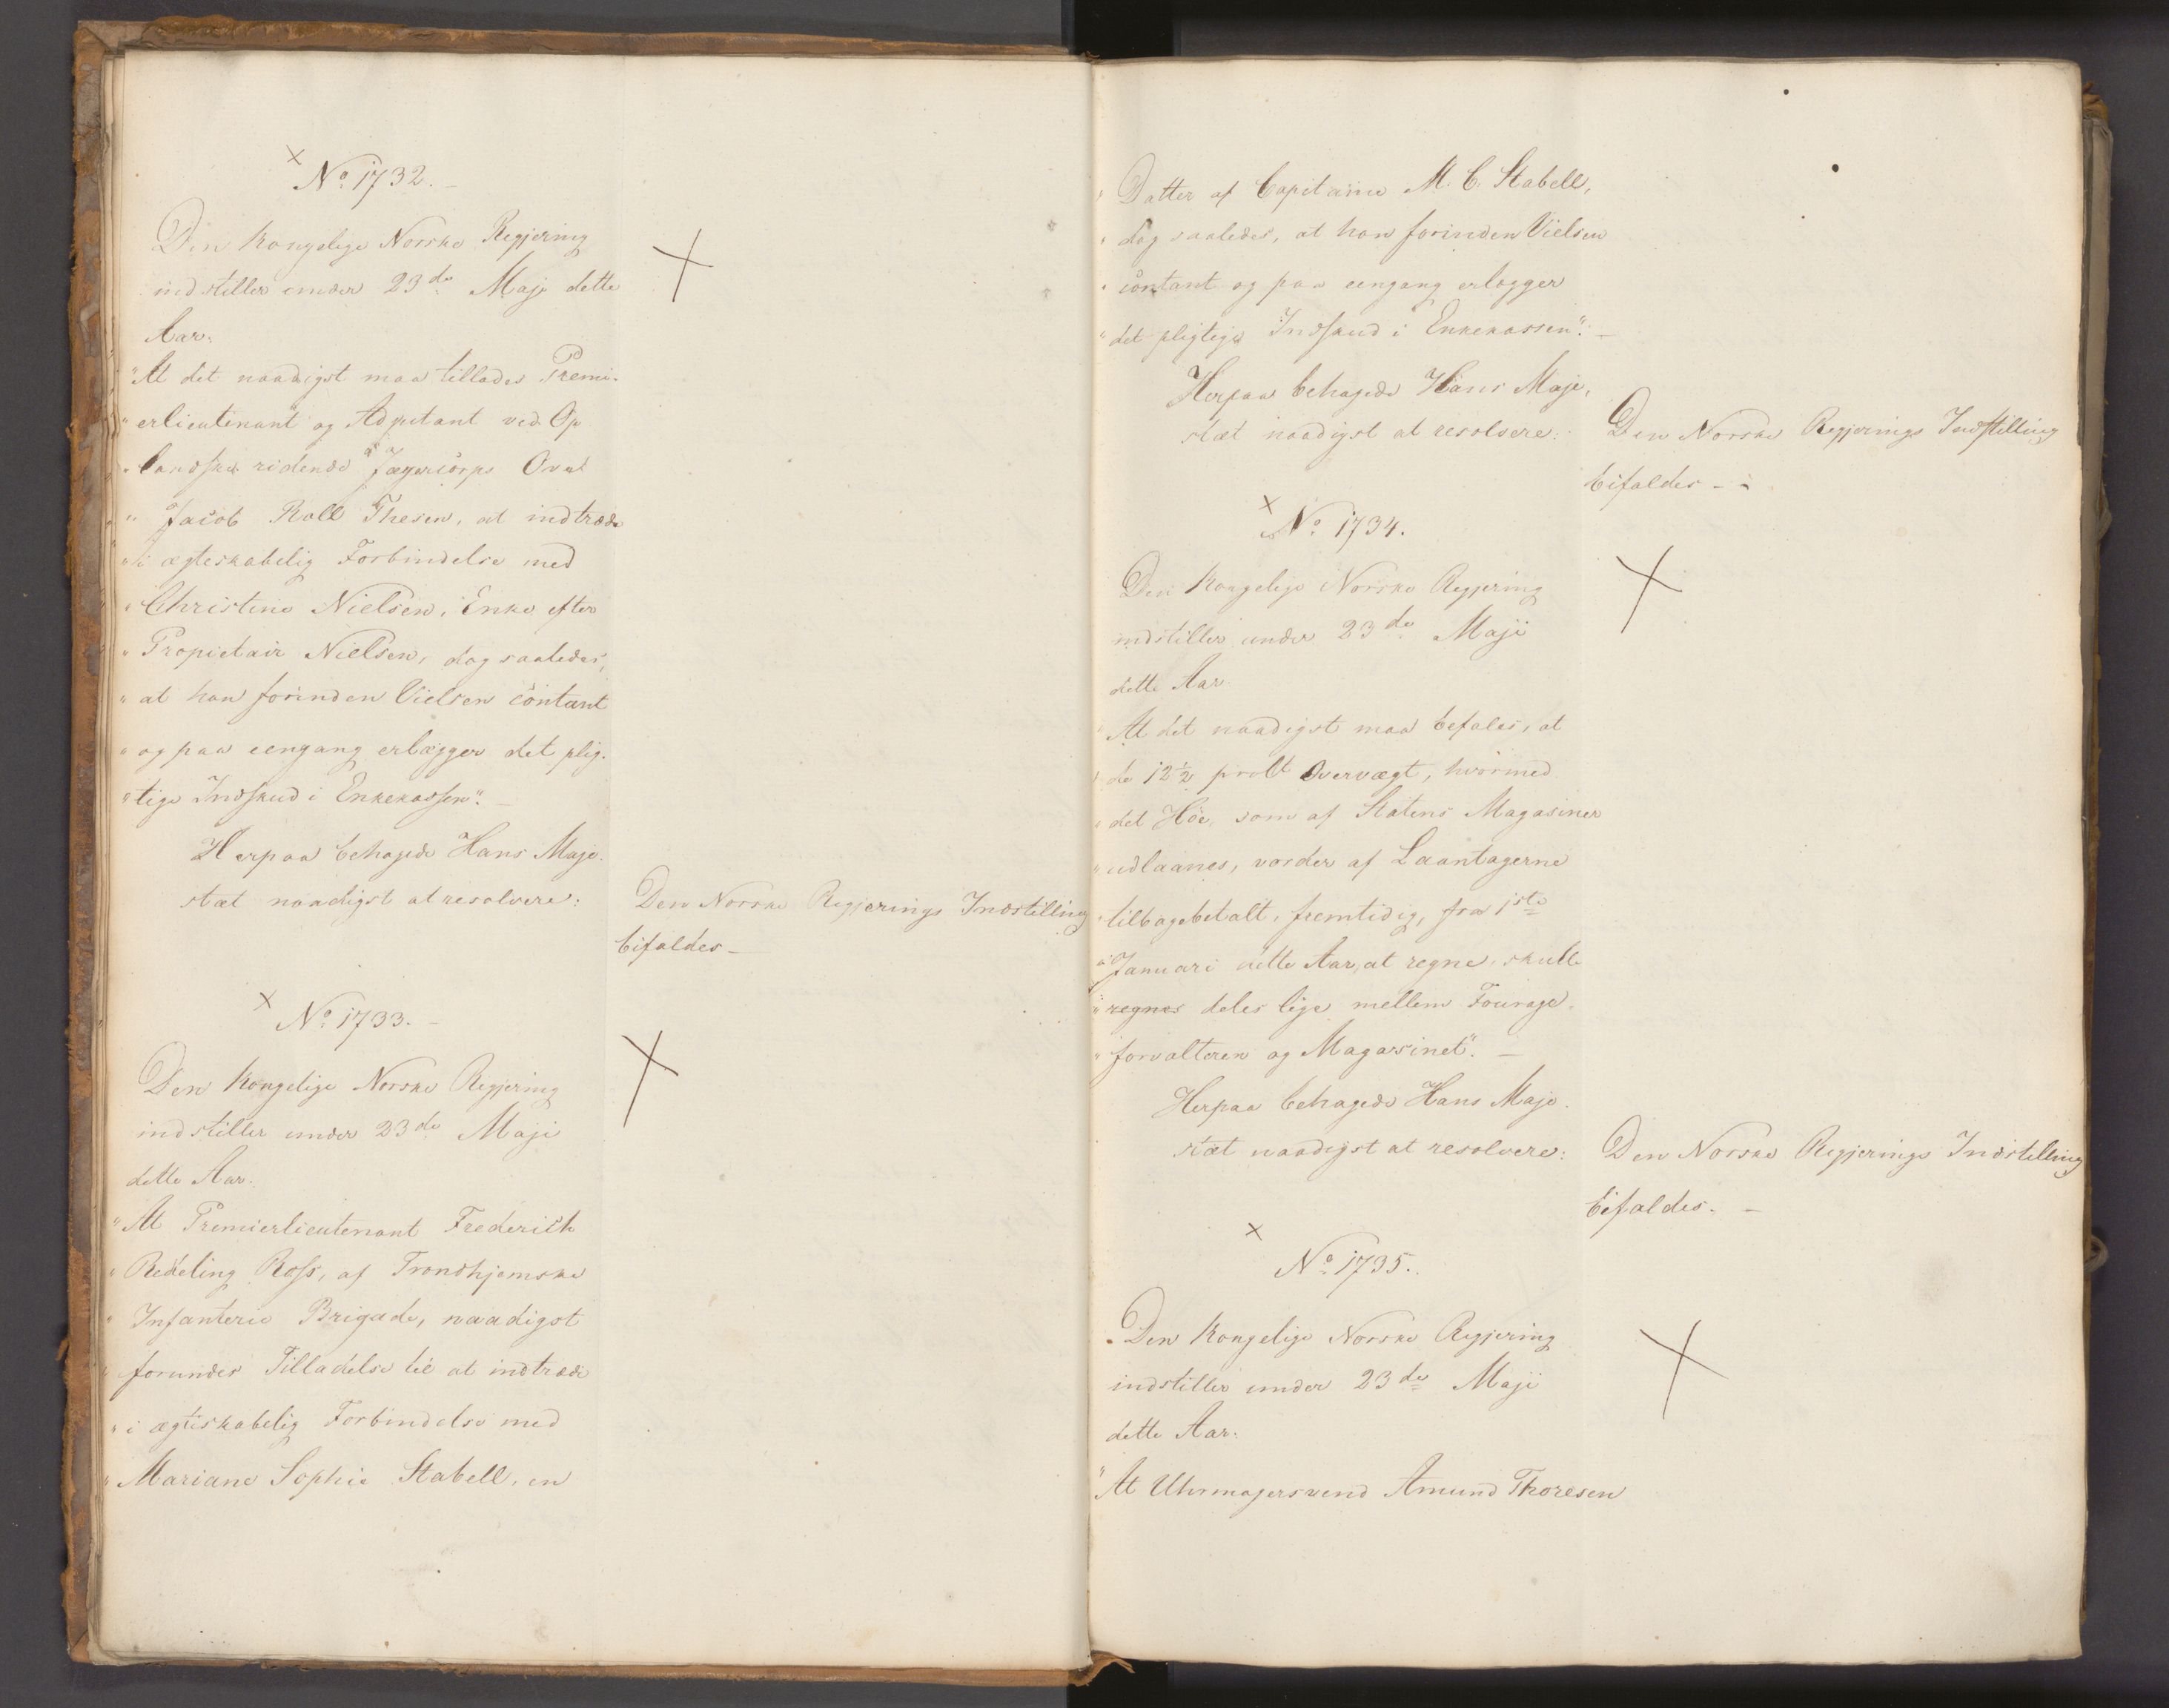 No 1732.
Den Kongelige Norske Regjering
indstiller under 23de Maji dette
Aar:
"At det naadigst maa tillades Premi-
"erlieutenant og Adjutant ved Op
"landske ridende Jægercorps Ove
"Jacob Roll Thesen, at indtræde
"i ægteskabelig Forbindelse med
"Christine Nielsen, Enke efter
"Propietair Nielsen, dog saaledes,
"at han forinden Vielsen contant
"og paa eengang erlægger det plig-
"tige Indskud i Enkekassen". -
Herpaa behagede Hans Maje-
stæt naadigst at resolvere:
Den Norske Regjerings Indstilling
bifaldes -
No 1733. -
Den Kongelige Norske Regjering
indstiller under 23de Maji
dette Aar:
"At Premierlieutenant Frederich
"Redeling Ross, af Trondhjemske
"Infanterie Brigade, naadigst
"forundes Tilladelse til at indtræde
"i ægteskabelig Forbindelse med
"Mariane Sophie Stabell, en
"Datter af Capitaine M. C. Stabell,
"dog saaledes, at han forinden Vielsen
"contant og paa eengang erlægger
"det pligtige Indskud i Enkekassen". -
Herpaa behagede Hans Maje-
stæt naadigst at resolvere:
Den Norske Regjerings Indstilling
bifaldes - -
No 1734.
Den Kongelige Norske Regjering
indstiller under 23de Maji
dette Aar
"At det naadigst maa befales, at
"de 12½ proCt Overvægt, hvormed
"det Höe, som af Statens Magasiner
"udlaanes, vorder af Laantagerne
"tilbagebetalt, fremtidig, fra 1ste
"Januari dette Aar, at regne, skulle
"regnes deles lige mellem Fourage-
"forvalteren og Magasinet". -
Herpaa behagede Hans Maje-
stæt naadigst at resolvere:
Den Norske Regjerings Indstilling
bifaldes. -
No 1735.
Den Kongelige Norske Regjering
indstiller under 23de Maji
dette Aar:
"At Uhrmagersvend Amund Thoresen